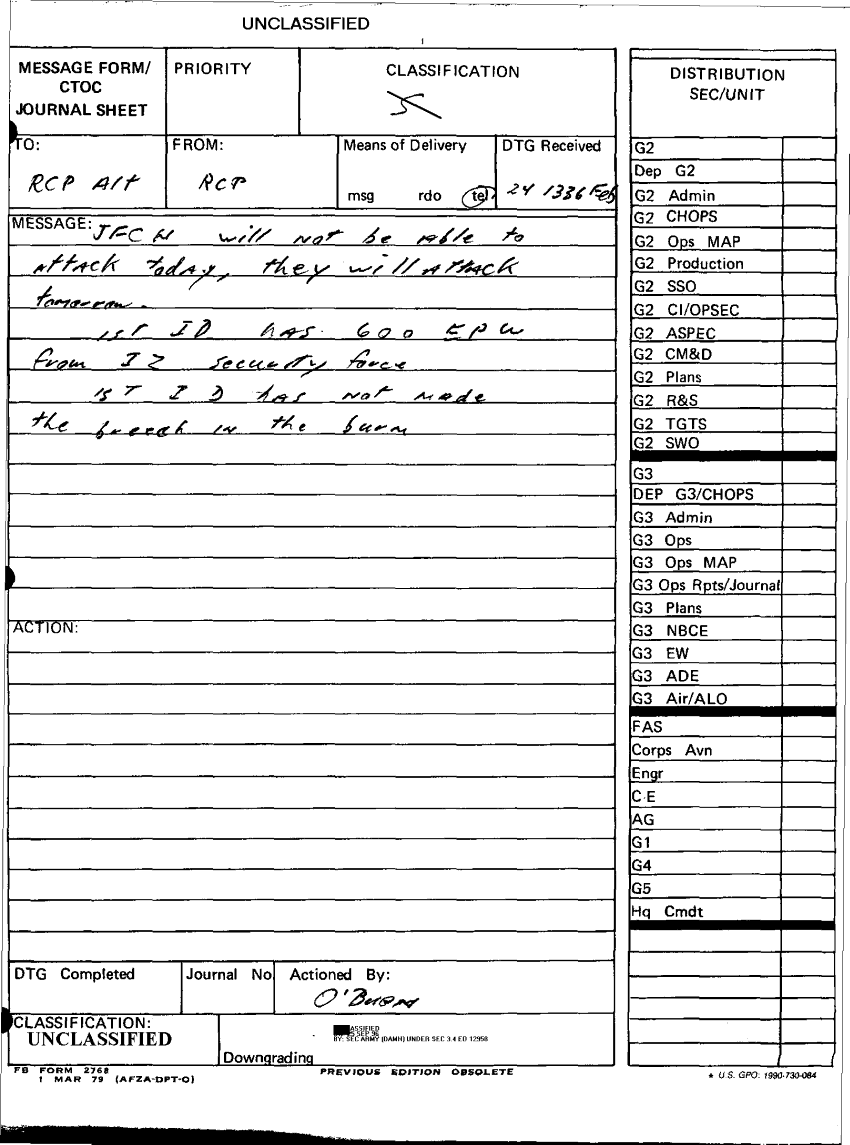 UNCLASSIFIED
MESSAGE FORM/
CTOC
JOURNAL SHEET
PRIORITY
CLASSIFICATION
S
TO:
RCP Alt
FROM:
RCP
Means of Delivery
msg rdo tel
DTG Received
24 1336 Feb
MESSAGE: JFC N will not be able to
attack today, they will attack
tomorrow.
1ST ID has 600 EPW
from IZ security force
1ST ID has not made
the breech in the burm
ACTION:
DTG Completed
Journal No
Actioned By:
CLASSIFICATION:
UNCLASSIFIED
ASSIFIED
5 SEP 96
BY: SEC ARMY (DAMH) UNDER SEC 3.4 EO 12958
Downgrading
FB FORM 2768
1 MAR 79 (AFZA-DPT-O)
PREVIOUS EDITION OBSOLETE
DISTRIBUTION
SEC/UNIT
G2
Dep G2
G2 Admin
G2 CHOPS
G2 Ops MAP
G2 Production
G2 SSO
G2 CI/OPSEC
G2 ASPEC
G2 CM&D
G2 Plans
G2 R&S
G2 TGTS
G2 SWO
G3
DEP G3/CHOPS
G3 Admin
G3 Ops
G3 Ops MAP
G3 Ops Rpts/Journal
G3 Plans
G3 NBCE
G3 EW
G3 ADE
G3 Air/ALO
FAS
Corps Avn
Engr
C-E
AG
G1
G4
G5
Hq Cmdt
* U.S. GPO: 1990-730-084